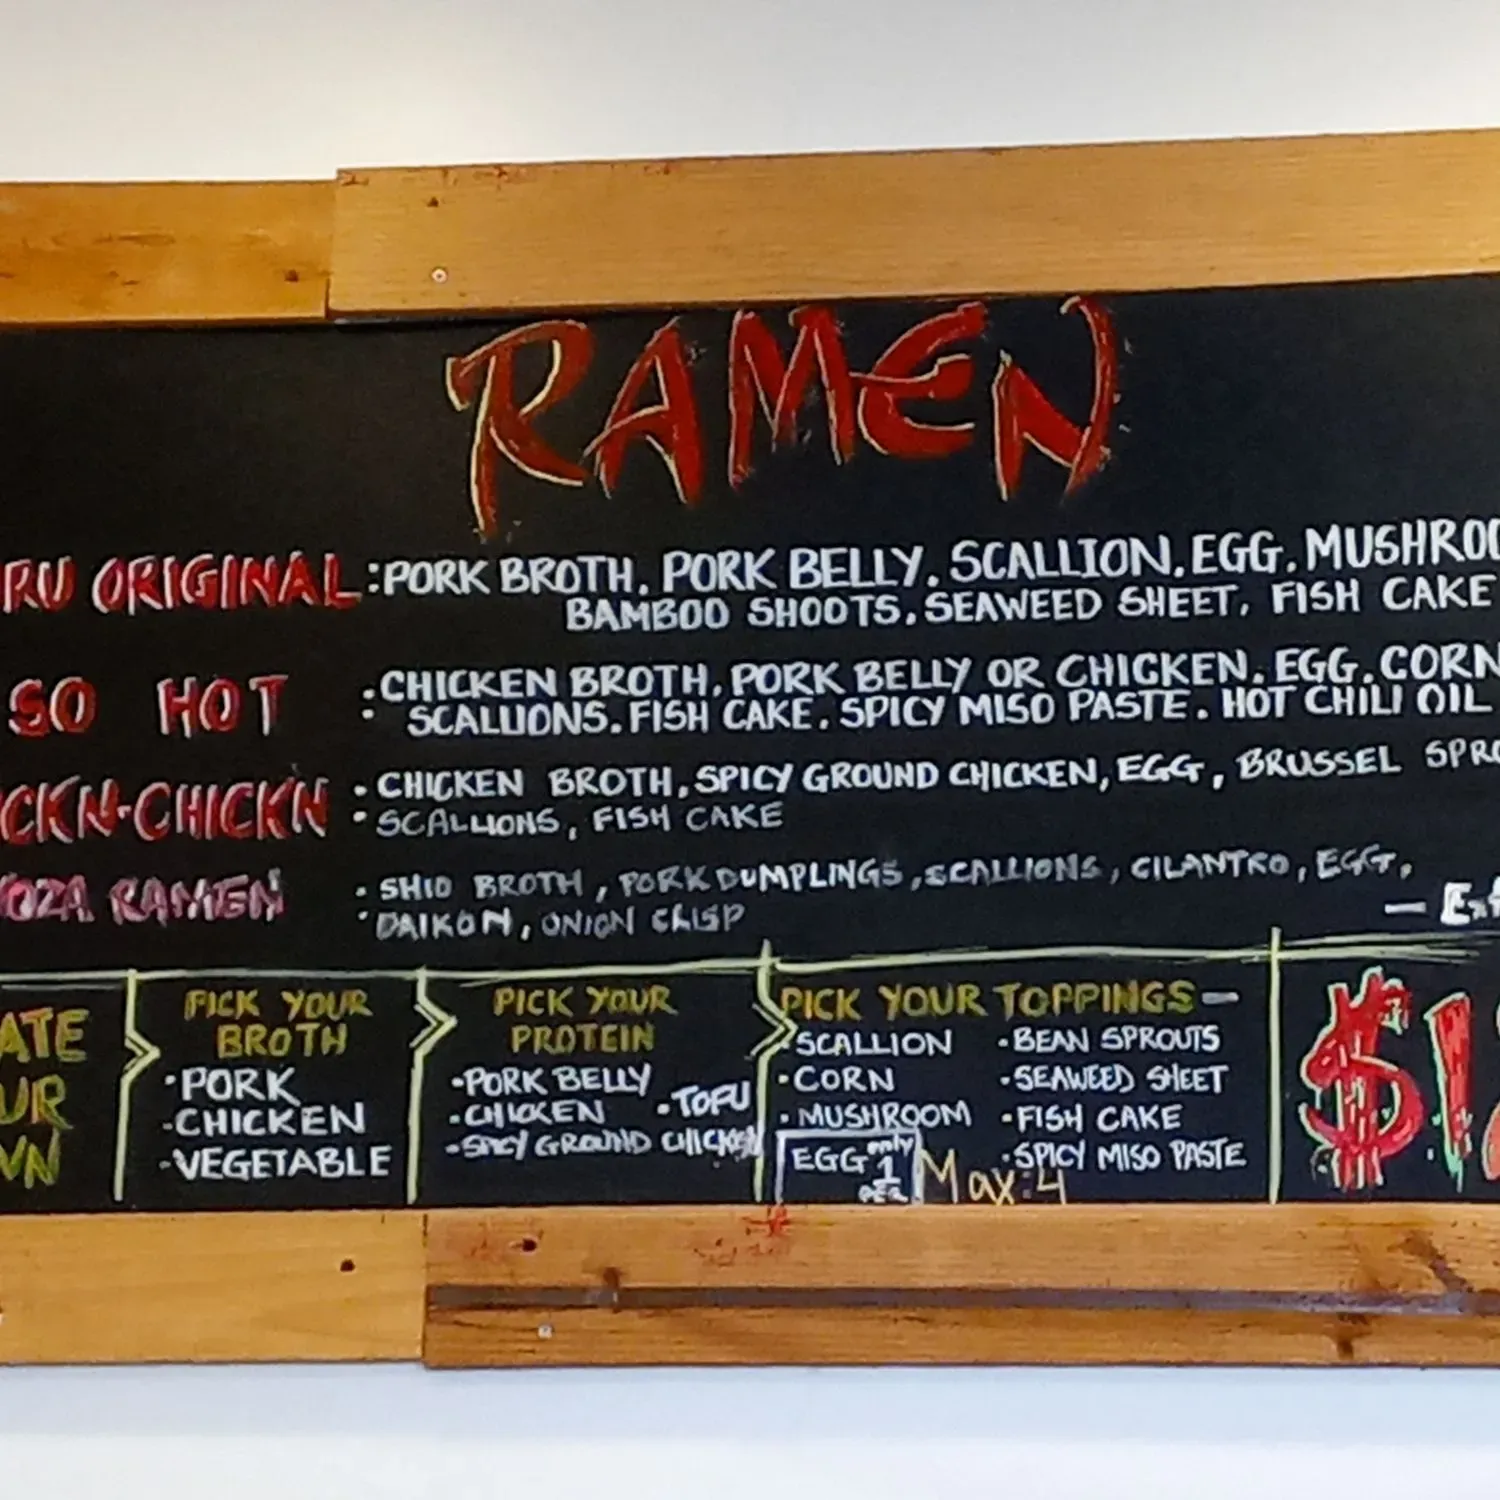 RAMEN
RU ORIGINAL : PORK BROTH. PORK BELLY. SCALLION. EGG. MUSHROO
BAMBOO SHOOTS. SEAWEED SHEET. FISH CAKE
SO HOT : CHICKEN BROTH. PORK BELLY OR CHICKEN. EGG. CORN
SCALLIONS. FISH CAKE. SPICY MISO PASTE. HOT CHILI OIL
CKN-CHICKN : CHICKEN BROTH. SPICY GROUND CHICKEN, EGG, BRUSSEL SPRO
SCALLIONS, FISH CAKE
OZA RAMEN : SHIO BROTH, PORK DUMPLINGS, SCALLIONS, CILANTRO, EGG,
DAIKON, ONION CRISP
— Ext
ATE
UR
WN
PICK YOUR
BROTH
·PORK
·CHICKEN
·VEGETABLE
PICK YOUR
PROTEIN
·PORK BELLY
·CHICKEN ·TOFU
·SPICY GROUND CHICKEN
PICK YOUR TOPPINGS—
·SCALLION
·CORN
·MUSHROOM
EGG only 1 PER
·BEAN SPROUTS
·SEAWEED SHEET
·FISH CAKE
·SPICY MISO PASTE
Max:4
$1